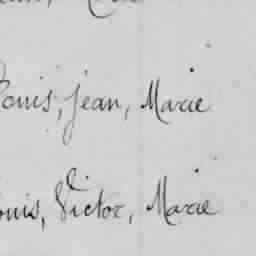 Louis, Jean, Marie
Louis, Victor, Marie